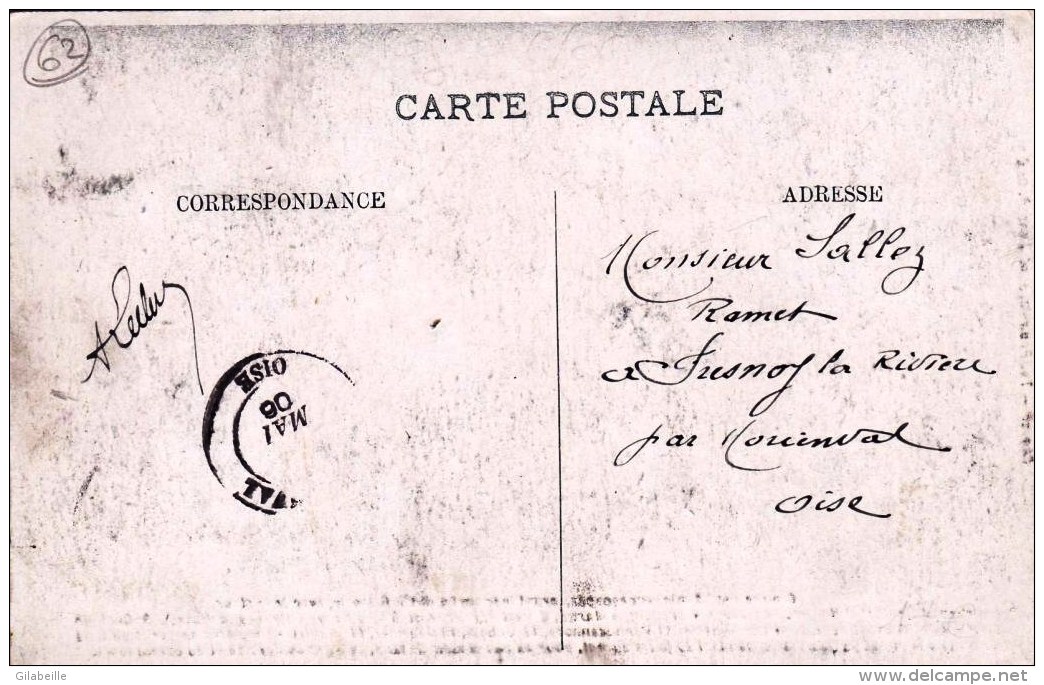 62
CARTE POSTALE
CORRESPONDANCE
ADRESSE
Monsieur Sallez
Ramet
a Fresnoy la Riviere
par Morienval
Oise
OISE
MAI
06
VAL
Gilabeille
www.delcampe.net